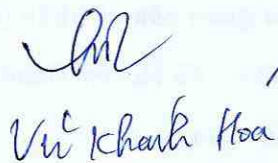 Vũ Khanh Hoa